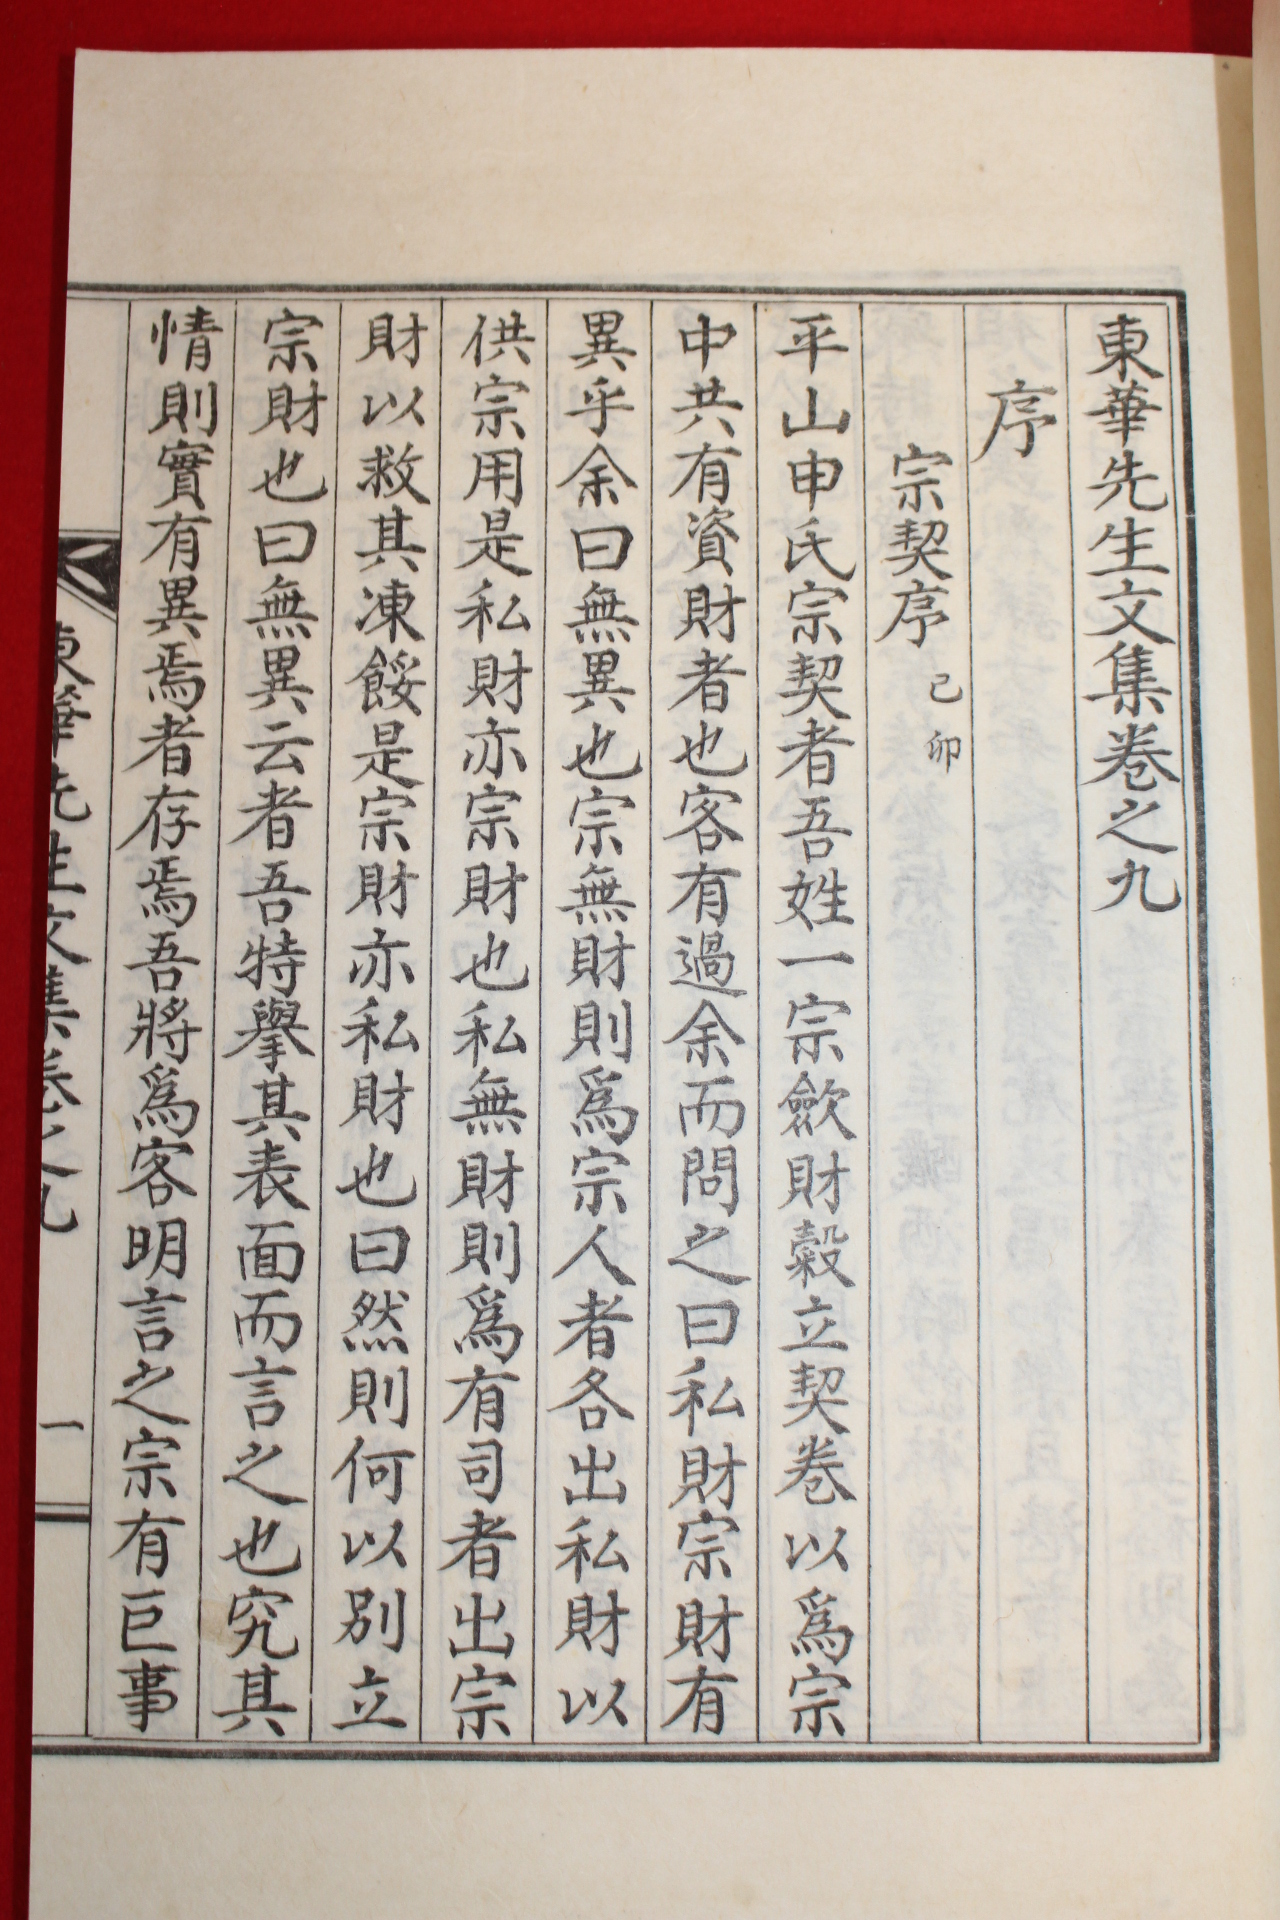 東華先生文集卷之九
序
宗契序 己卯
平山申氏宗契者吾姓一宗斂財穀立契卷以爲宗
中共有資財者也客有過余而問之曰私財宗財有
異乎余曰無異也宗無財則爲宗人者各出私財以
供宗用是私財亦宗財也私無財則爲有司者出宗
財以救其凍餒是宗財亦私財也曰然則何以別立
宗財也曰無異云者吾特擧其表面而言之也究其
情則實有異焉者存焉吾將爲客明言之宗有巨事
東華先生文集卷之九
一